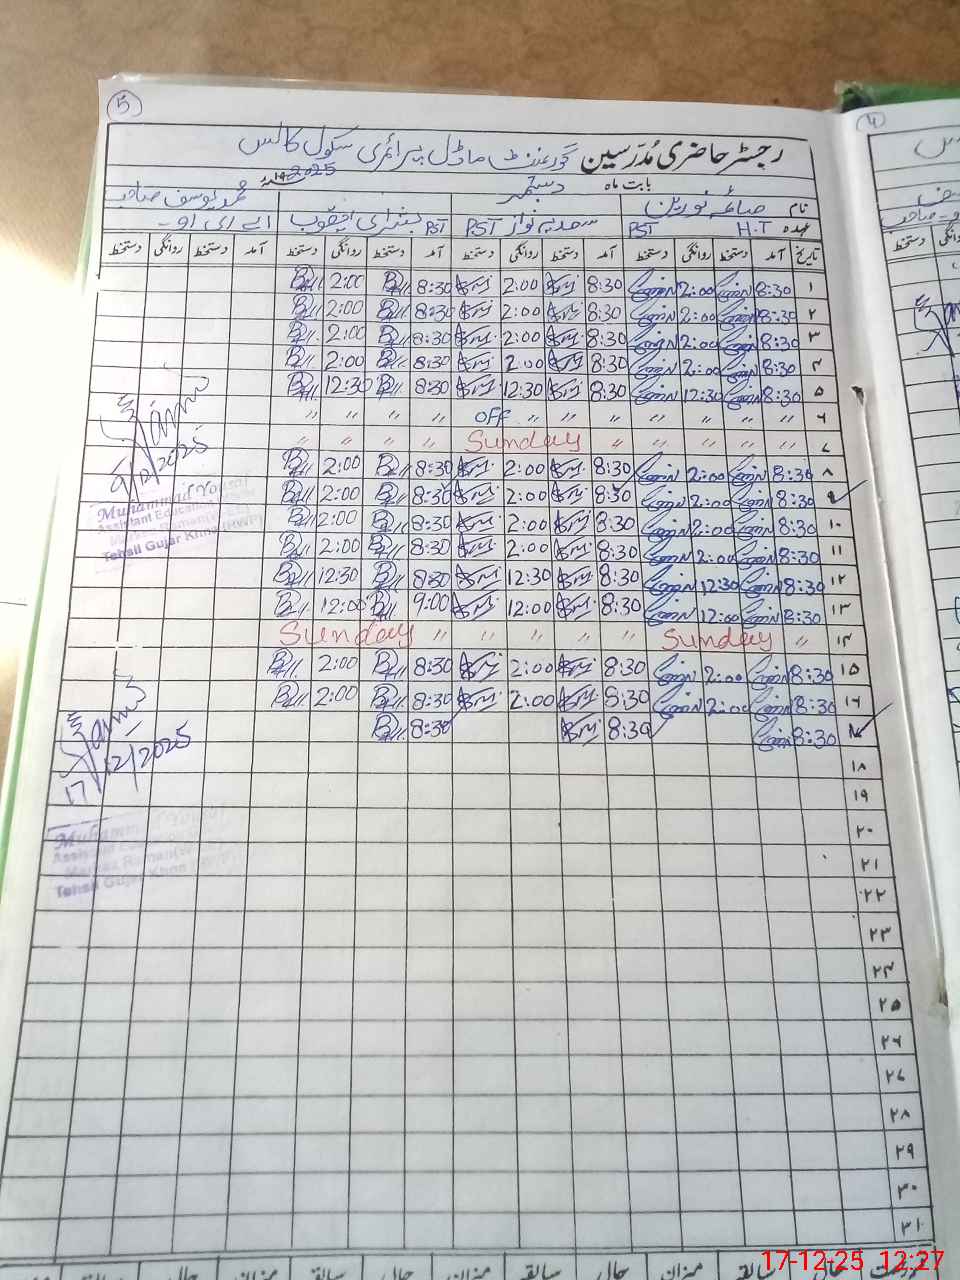 ۵
۴
رجسٹر حاضری مُدرّسین گورنمنٹ ماڈل پرائمری سکول کالس
بابت ماہ دسمبر 2025
نام صائمہ نورین سعدیہ نواز بشریٰ یعقوب محمد یوسف صاحب
عہدہ H.T PST PST PST اے ای او
تاریخ آمد دستخط روانگی دستخط آمد دستخط روانگی دستخط آمد دستخط روانگی دستخط آمد دستخط روانگی دستخط
۱ 8:30 2:00 8:30 2:00 8:30 2:00
۲ 8:30 2:00 8:30 2:00 8:30 2:00
۳ 8:30 2:00 8:30 2:00 8:30 2:00
۴ 8:30 2:00 8:30 2:00 8:30 2:00
۵ 8:30 12:30 8:30 12:30 8:30 12:30
۶ " " " " " " OFF " " " "
۷ " " " " " Sunday " " " "
۸ 8:30 2:00 8:30 2:00 8:30 2:00
۹ 8:30 2:00 8:30 2:00 8:30 2:00
۱۰ 8:30 2:00 8:30 2:00 8:30 2:00
۱۱ 8:30 2:00 8:30 2:00 8:30 2:00
۱۲ 8:30 12:30 8:30 12:30 8:30 12:30
۱۳ 8:30 12:00 8:30 12:00 9:00 12:00
۱۴ " Sunday " " " " Sunday
۱۵ 8:30 2:00 8:30 2:00 8:30 2:00
۱۶ 8:30 2:00 8:30 2:00 8:30 2:00
۱۷ 8:30 8:30 8:30
۱۸
۱۹
۲۰
۲۱
۲۲
۲۳
۲۴
۲۵
۲۶
۲۷
۲۸
۲۹
۳۰
۳۱
9/12/2025
Muhammad Yousaf
Assistant Education
Tehsil Gujar Khan (RWP)
17/12/2025
Muhammad Yousaf
Assistant Education
Tehsil Gujar Khan (RWP)
حال سابقہ میزان حال سابقہ میزان حال سابقہ میزان حال سابقہ
17-12-25 12:27